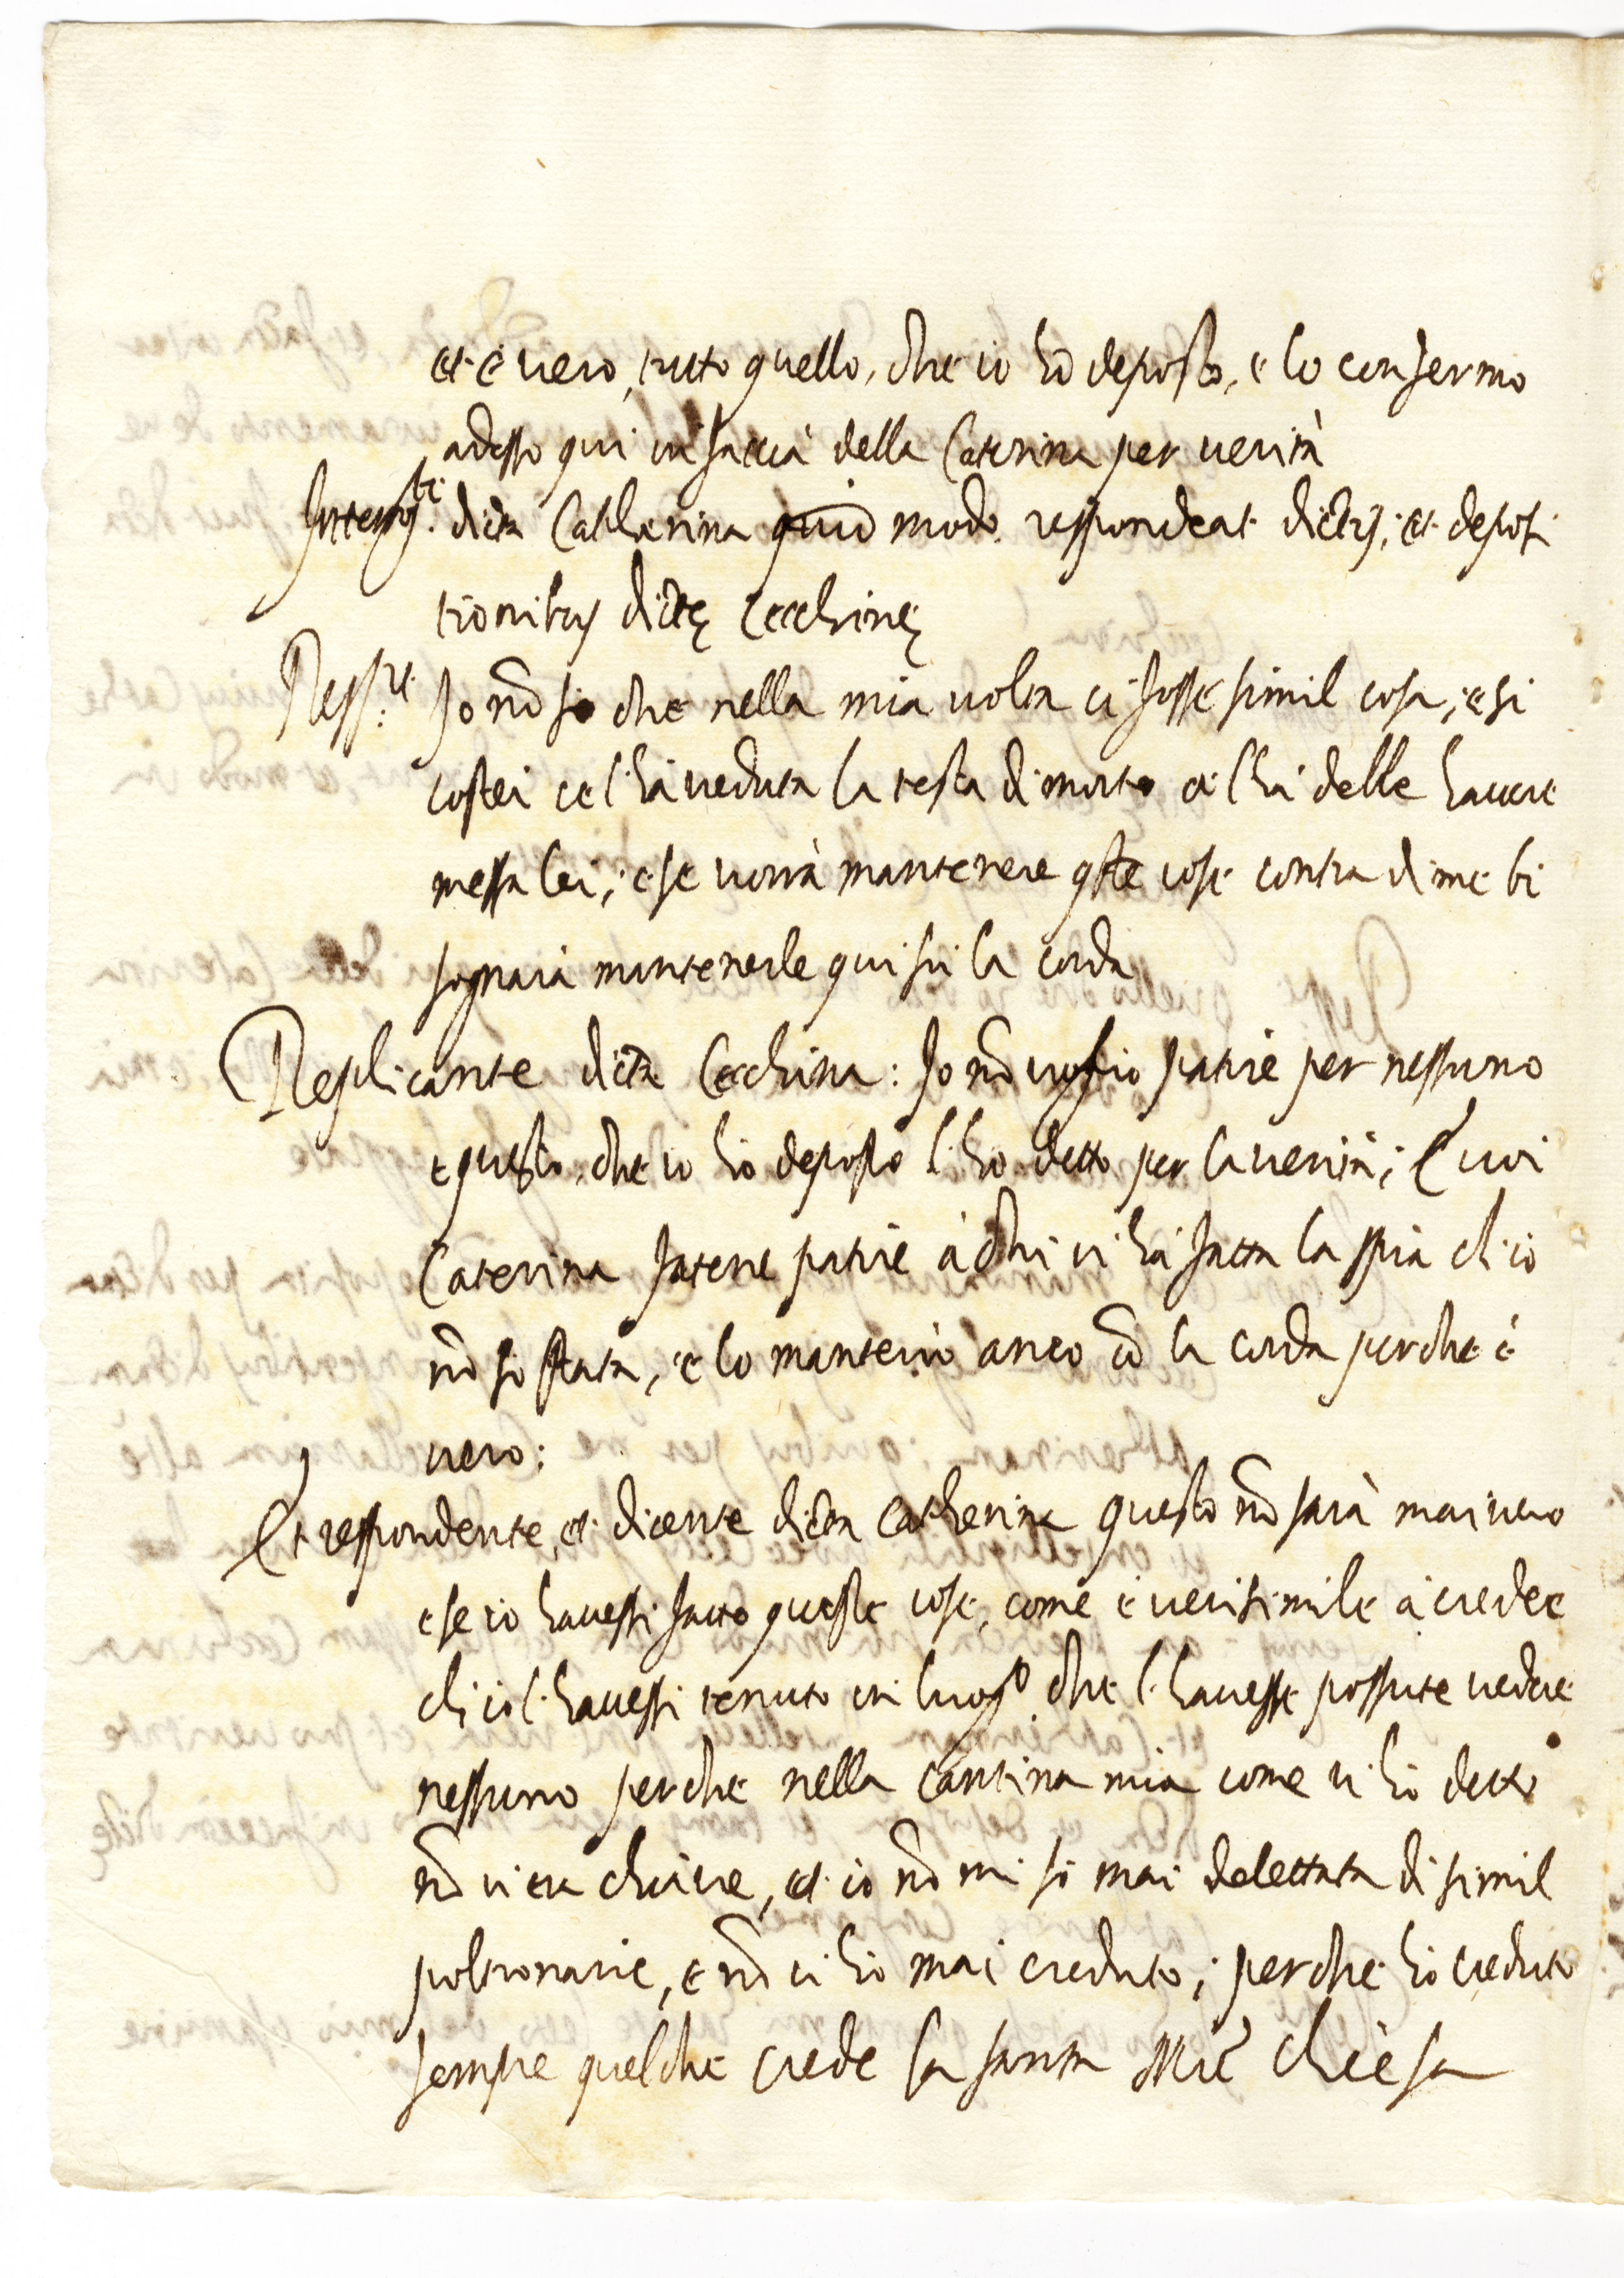 et è vero tutto quello, che io hò deposto, e lo confermo
adesso qui in faccia della Caterina per verità
Interrog.ta dicta Catherina quid modo respondeat dictis, et deposi
tionibus dictę Cecchinę
Resp.it Io nõ so che nella mia volta ci fosse simil cosa, e si
costei ce l'hà veduta la testa di morto ce l'hà delle havere
messa lei, e se vorrà mantenere qste cose contra di me bi
sognarà mantenerle qui sù la corda
Replicante dicta Cecchina: Io nõ voglio patire per nessuno
e questo, che io hò deposto l'ho detto per la verità; E voi
Caterina fatene patire à chi vi hà fatta la spia ch'io
nõ so stata, e lo manterrò anco cõ la corda perche è
vero:
Et respondente, et dicente dicta Catherina questo nõ sarà mai vero
e se io havessi fatto queste cose, come è verisimile à credere
ch'io l'havessi tenuto in luogo che l'havesse possute vedere
nessuno perche nella cantina mia come vi hò detto
nõ vi era chiave, et io nõ mi so mai delettata di simil
poltronarie, e nõ vi hò mai creduto; perche hò creduto
sempre quel che crede la santa Mrẽ chiesa